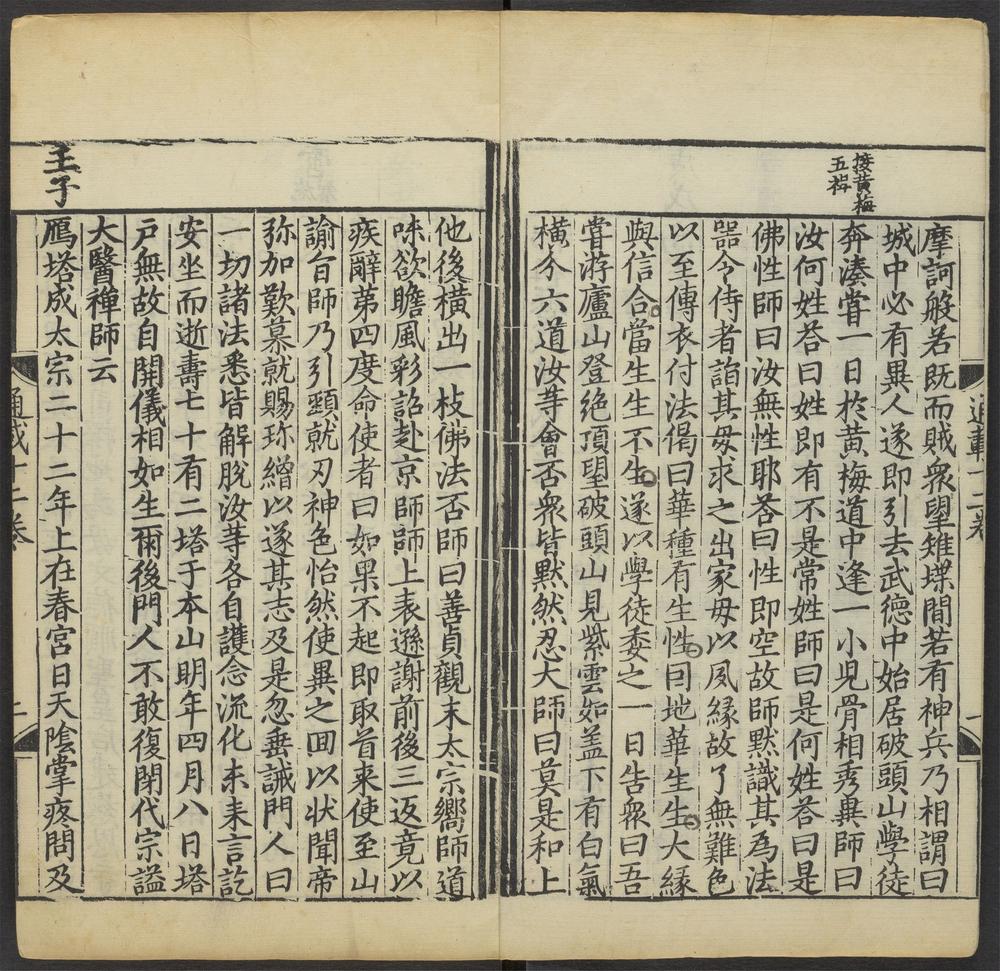 接黃梅
五祖
摩訶般若既而賊衆望雉堞間若有神兵乃相謂曰
城中必有異人遂即引去武德中始居破頭山學徒
奔湊嘗一日於黃梅道中逢一小兒骨相秀異師曰
汝何姓荅曰姓即有不是常姓師曰是何姓荅曰是
佛性師曰汝無性耶荅曰性即空故師默識其為法
噐令侍者詣其母求之出家母以夙縁故了無難色
以至傳衣付法偈曰華種有生性囙地華生生大縁
與信合當生生不生遂以學徒委之一日告衆曰吾
嘗游廬山登绝頂望破頭山見紫雲如盖下有白氣
橫今六道汝等會否衆皆默然忍大師曰莫是和上
通載十二卷
一
他後橫出一枝佛法否師曰善貞觀末太宗嚮師道
味欲瞻風彩詔赴京師師上表遜謝前後三返竟以
疾辭苐四度命使者曰如果不起即取首来使至山
諭旨師乃引頸就刃神色怡然使異之囬以状聞帝
弥加歎慕就賜珎繒以遂其志及是忽垂誡門人曰
一切諸法悉皆解脫汝等各自護念流化未来言訖
安坐而逝壽七十有二塔于本山明年四月八日塔
戸無故自開儀相如生爾後門人不敢復閉代宗謚
大醫禪師云
王子
鴈塔成太宗二十二年上在春宮日天陰掌疼問及
通載十二卷
二